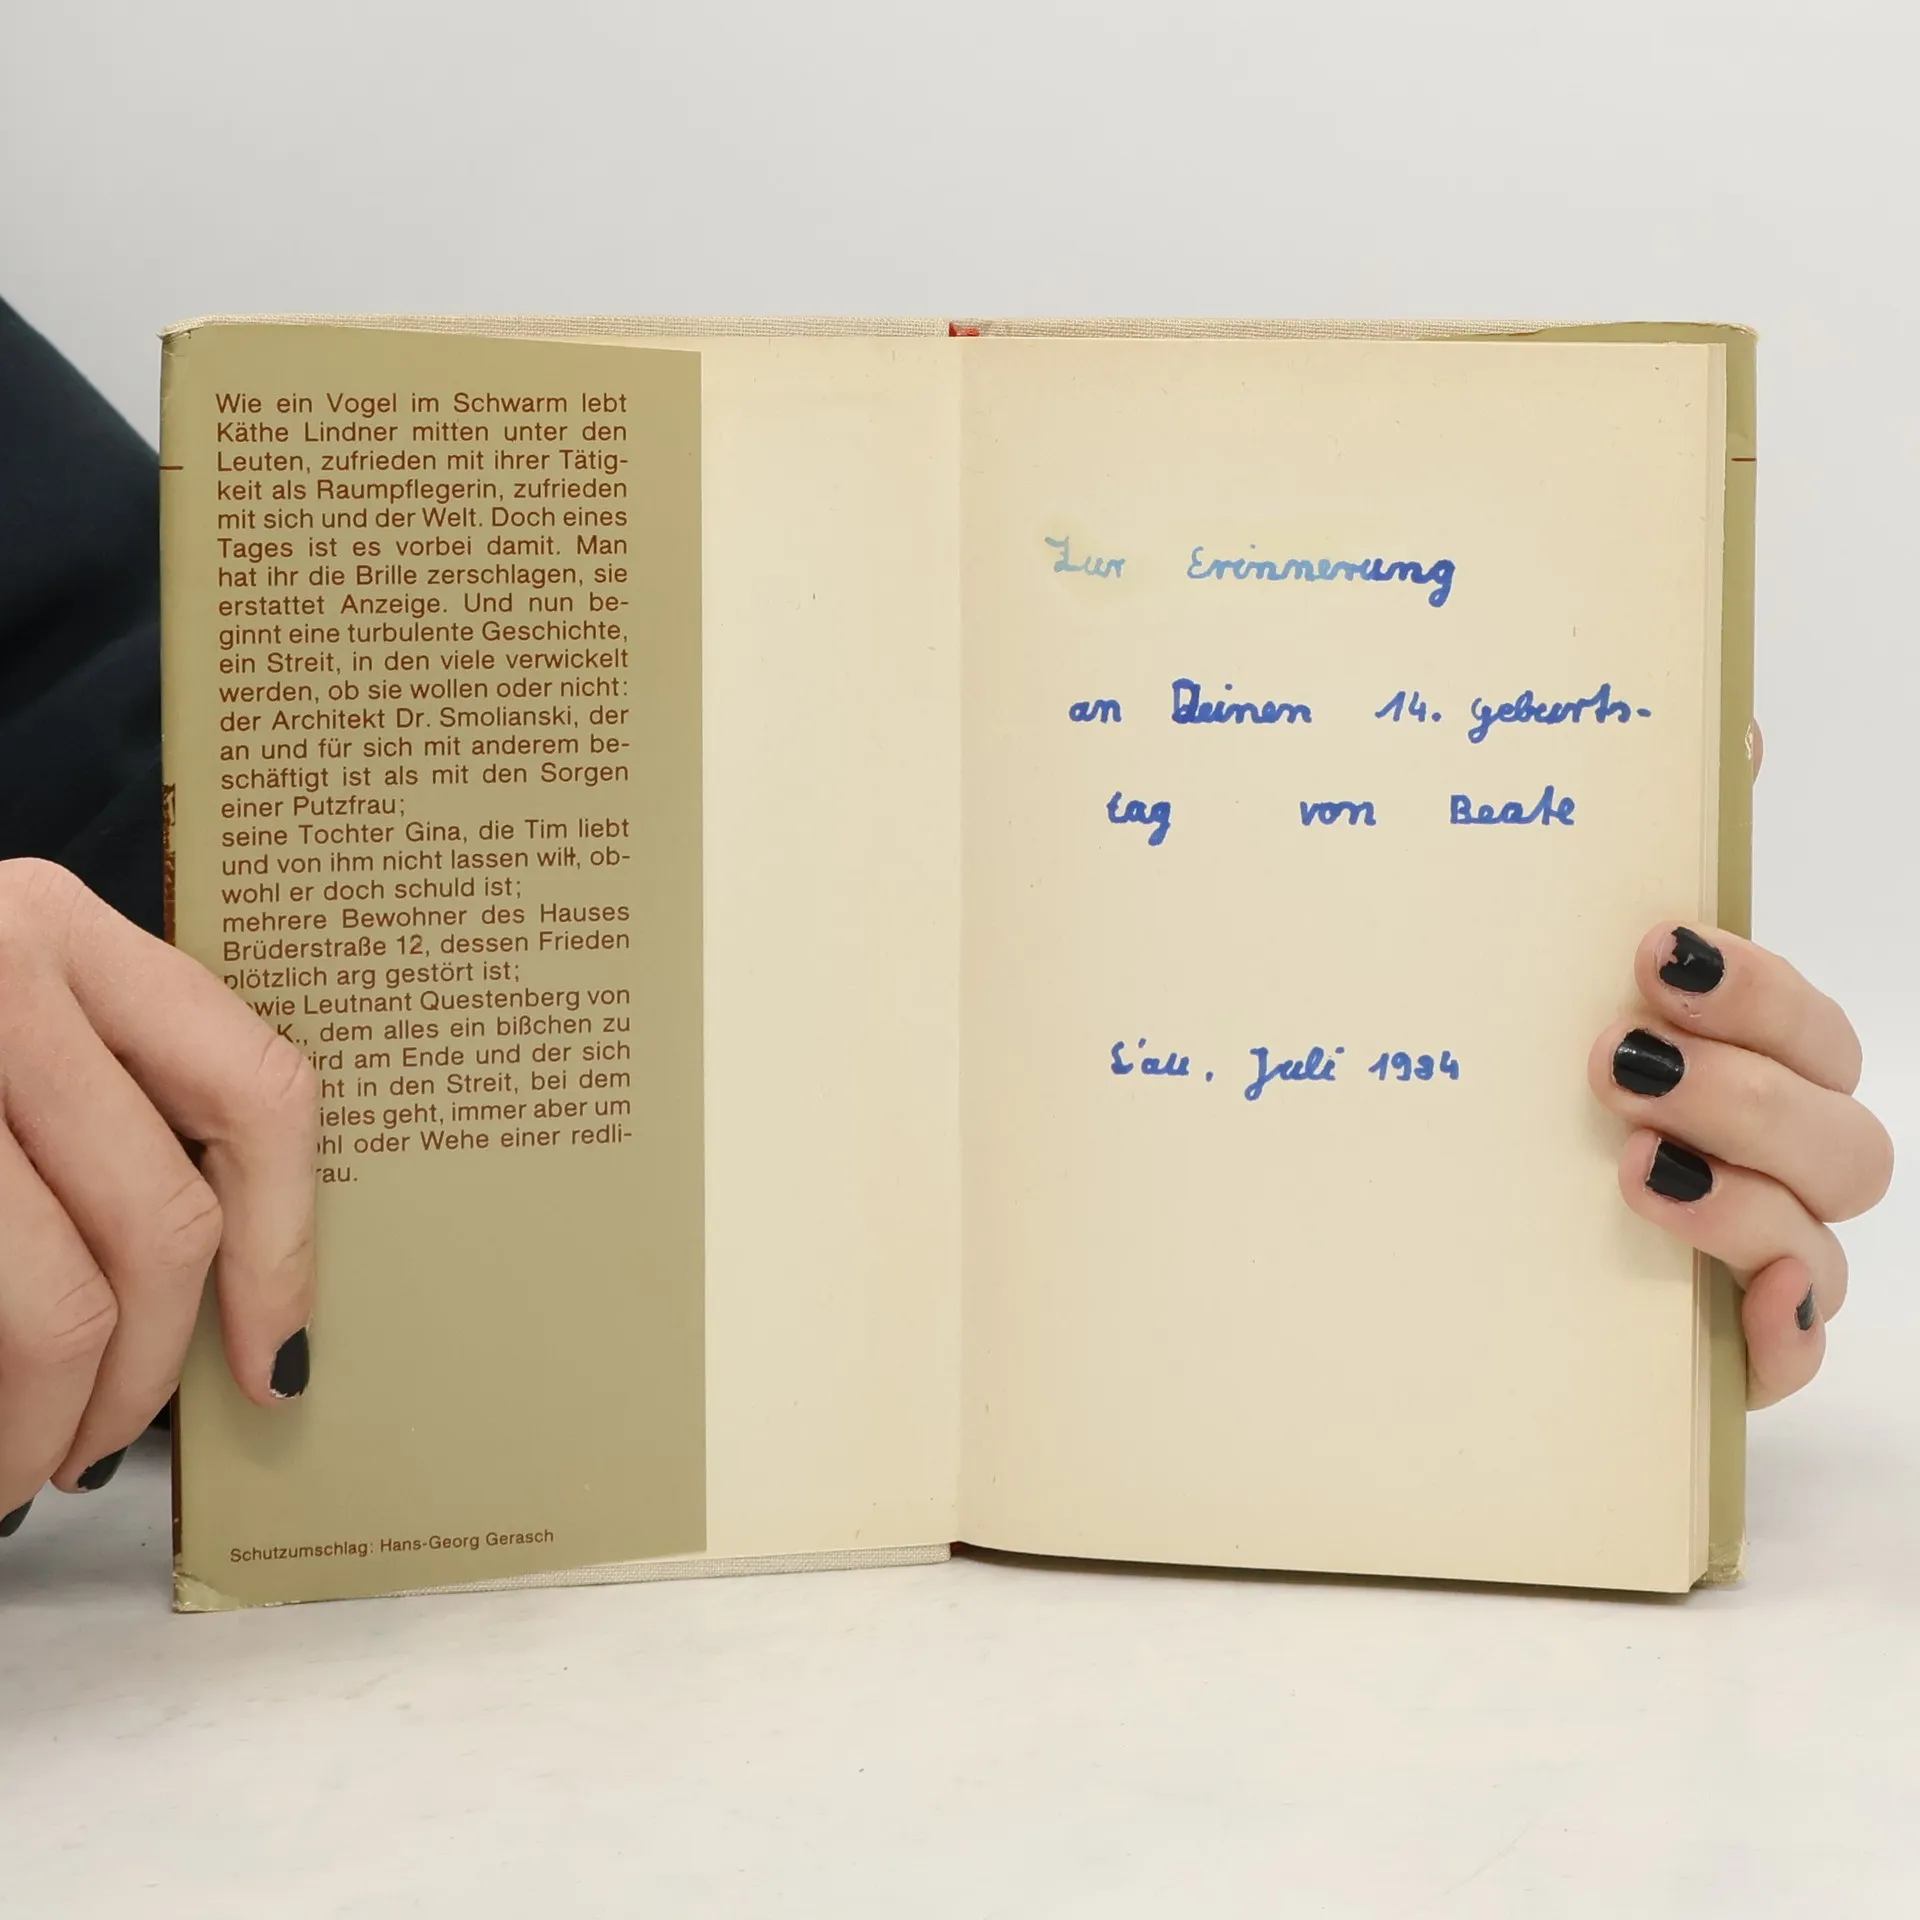 Wie ein Vogel im Schwarm lebt
Käthe Lindner mitten unter den
Leuten, zufrieden mit ihrer Tätig-
keit als Raumpflegerin, zufrieden
mit sich und der Welt. Doch eines
Tages ist es vorbei damit. Man
hat ihr die Brille zerschlagen, sie
erstattet Anzeige. Und nun be-
ginnt eine turbulente Geschichte,
ein Streit, in den viele verwickelt
werden, ob sie wollen oder nicht:
der Architekt Dr. Smolianski, der
an und für sich mit anderem be-
schäftigt ist als mit den Sorgen
einer Putzfrau;
seine Tochter Gina, die Tim liebt
und von ihm nicht lassen will, ob-
wohl er doch schuld ist;
mehrere Bewohner des Hauses
Brüderstraße 12, dessen Frieden
plötzlich arg gestört ist;
Leutnant Questenberg von
K., dem alles ein bißchen zu
am Ende und der sich
in den Streit, bei dem
geht, immer aber um
oder Wehe einer redli-
Schutzumschlag: Hans-Georg Gerasch
Zur Erinnerung
an Deinen 14. Geburts-
tag von Beate
L'au, Juli 1984